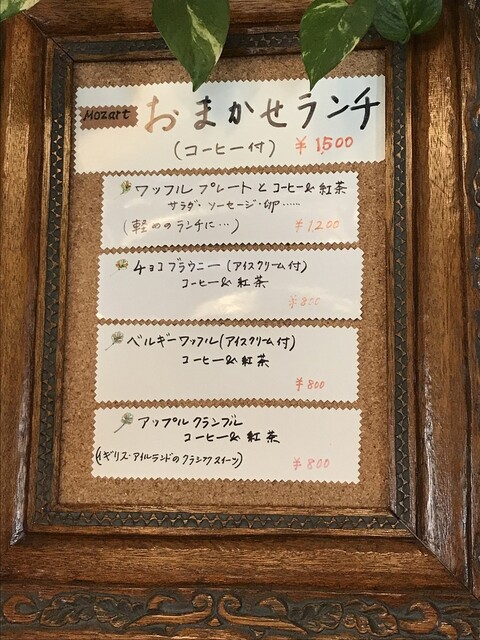 Mozart おまかせランチ
(コーヒー付) ¥1,500
ワッフル プレートとコーヒー&紅茶
サラダ・ソーセージ・卵……
(軽めのランチに…) ¥1200
チョコブラウニー(アイスクリーム付)
コーヒー&紅茶
¥800
ベルギーワッフル(アイスクリーム付)
コーヒー&紅茶
¥800
アップルクランブル
コーヒー&紅茶
(イギリス・アイルランドのクラシックスイーツ) ¥800